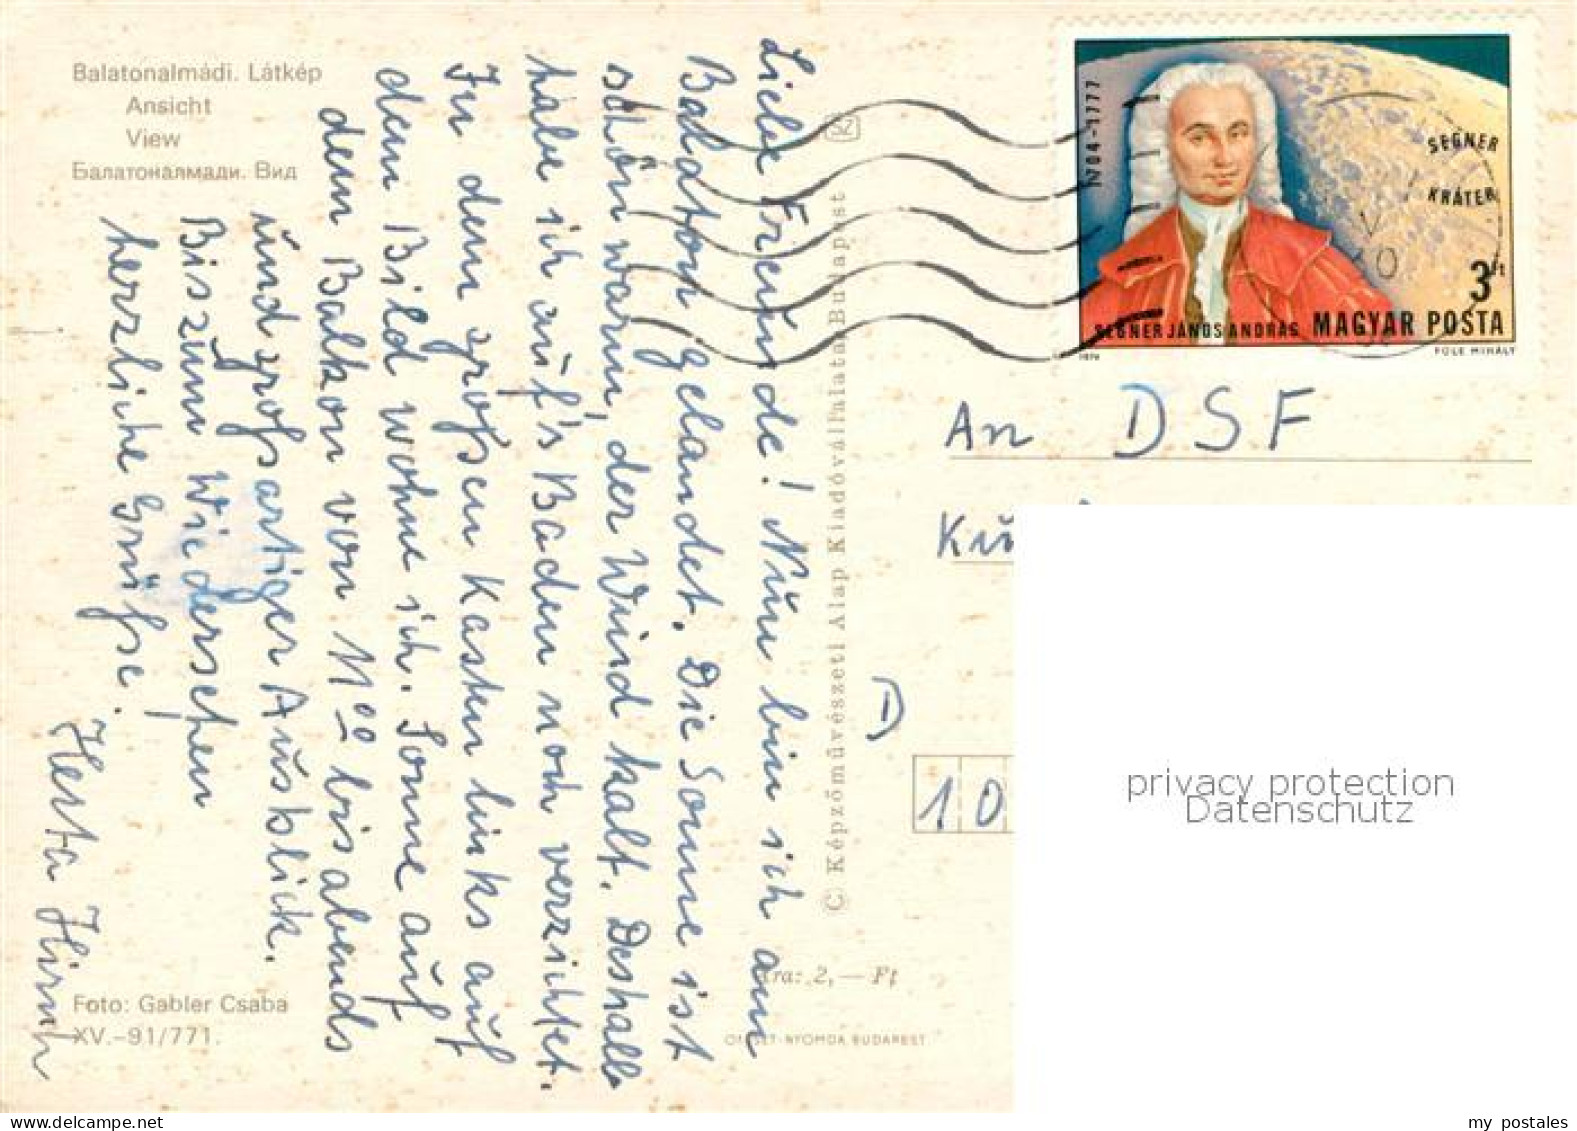 Balatonalmádi. Látkép
Ansicht
View
Балатоналмади. Вид
Liebe Freunde! Nun bin ich am
Balaton gelandet. Die Sonne ist
schön warm, der Wind kalt. Deshalb
habe ich auf's Baden noch verzichtet.
In dem großen Kasten links auf
dem Bild wohne ich. Sonne auf
dem Balkon von 11°° bis abends
und großartiger Ausblick.
Bis zum Wiedersehen
herzliche Grüße.
Herta Hirsch
Foto: Gabler Csaba
XV.-91/771.
SZ
© Képzőművészeti Alap Kiadóvállalata, Budapest
Ára: 2,— Ft
OFFSET-NYOMDA BUDAPEST
1704-1777
SEGNER
KRÁTER
3 Ft
SEGNER JÁNOS ANDRÁS MAGYAR POSTA
1974
FÜLE MIHÁLY
V
10
An DSF
D
10
privacy protection
Datenschutz
my postales